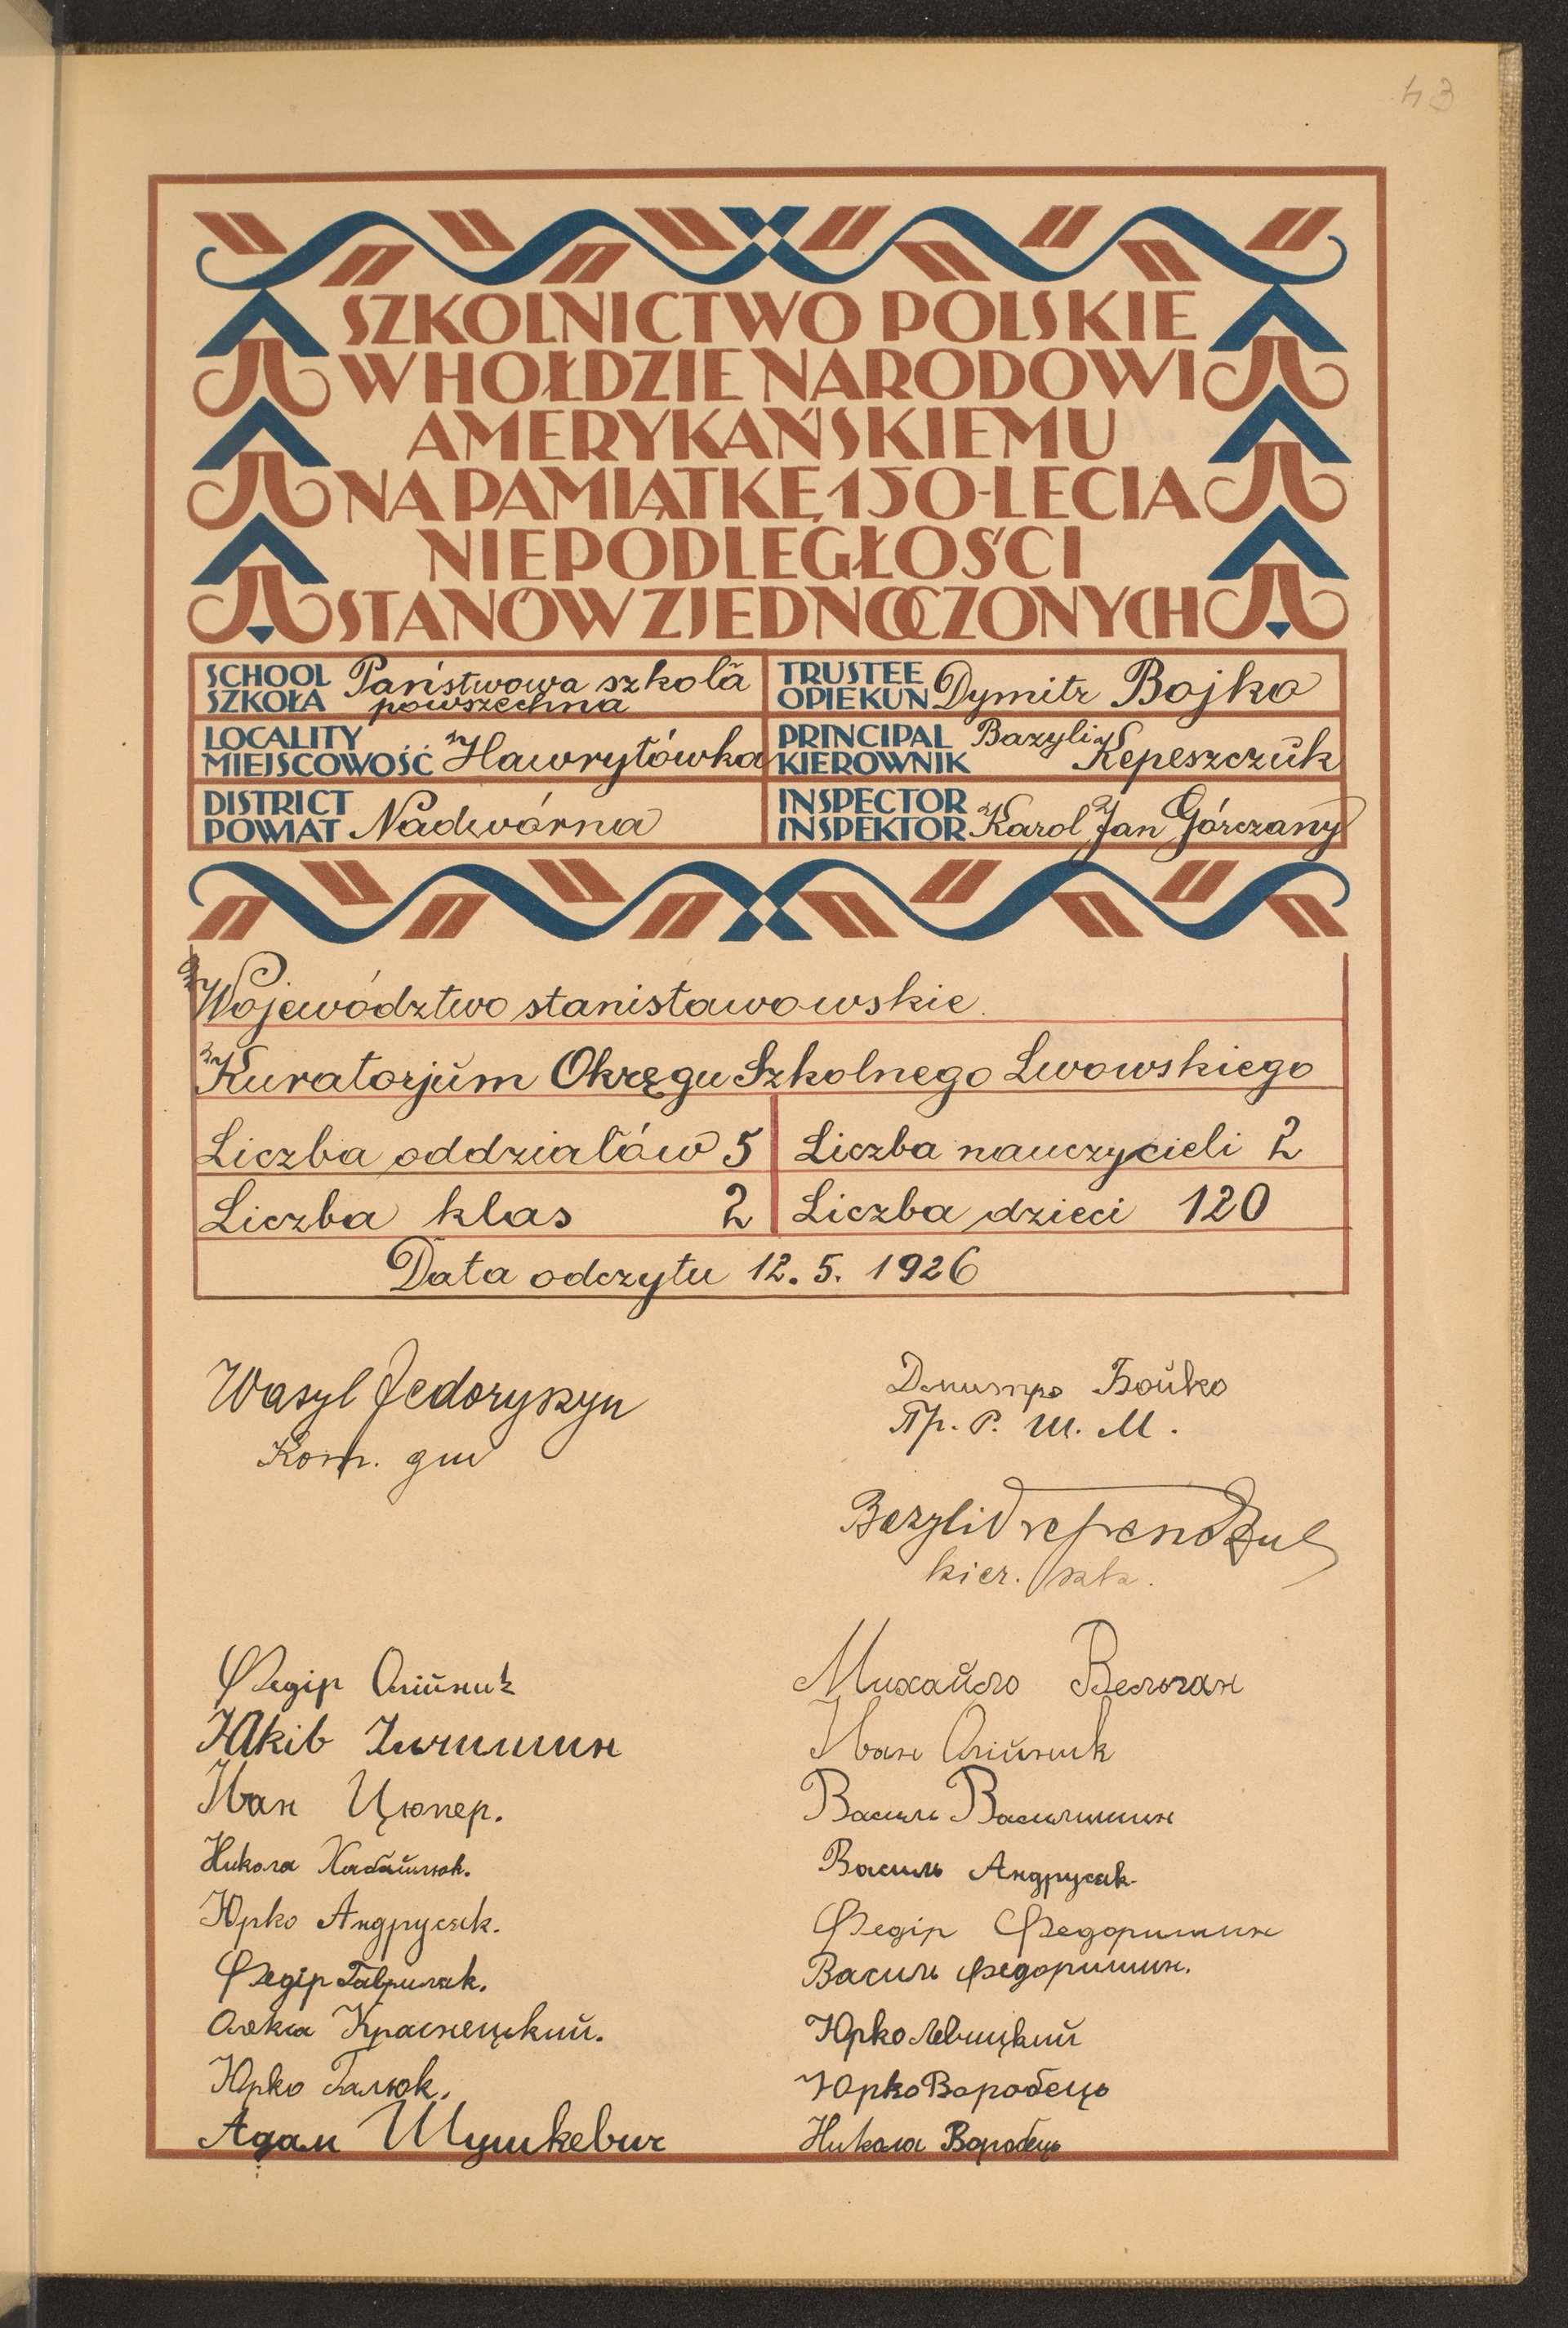 43
SZKOLNICTWO POLSKIE
W HOŁDZIE NARODOWI
AMERYKAŃSKIEMU
NA PAMIĄTKĘ 150-LECIA
NIEPODLEGŁOŚCI
STANÓW ZJEDNOCZONYCH
SCHOOL
SZKOŁA Państwowa szkoła powszechna
TRUSTEE
OPIEKUN Dymitr Bojko
LOCALITY
MIEJSCOWOŚĆ Hawryłówka
PRINCIPAL
KIEROWNIK Bazyli Kepeszczuk
DISTRICT
POWIAT Nadwórna
INSPECTOR
INSPEKTOR Karol Jan Górczany
Województwo stanisławowskie.
Kuratorjum Okręgu Szkolnego Lwowskiego
Liczba oddziałów 5 Liczba nauczycieli 2
Liczba klas 2 Liczba dzieci 120
Data odczytu 12. 5. 1926
Wasyl Fedoryszyn
Kom. gm
Дмитро Бойко
Пр. Р. Ш. М.
Bazyli
kier. szk.
Федір Олійник
Михайло Вельган
Юків
Іван Олійник
Іван Цюпер.
Василь Василишин
Никола
Василь Андрусяк
Юрко Андрусяк.
Федір Федоришин
Федір Гаврилак.
Василь Федоришин.
Олекса Краснецький.
Юрко Левицкий
Юрко Галюк.
Юрко Воробець
Адам Шушкевич
Никола Воробець